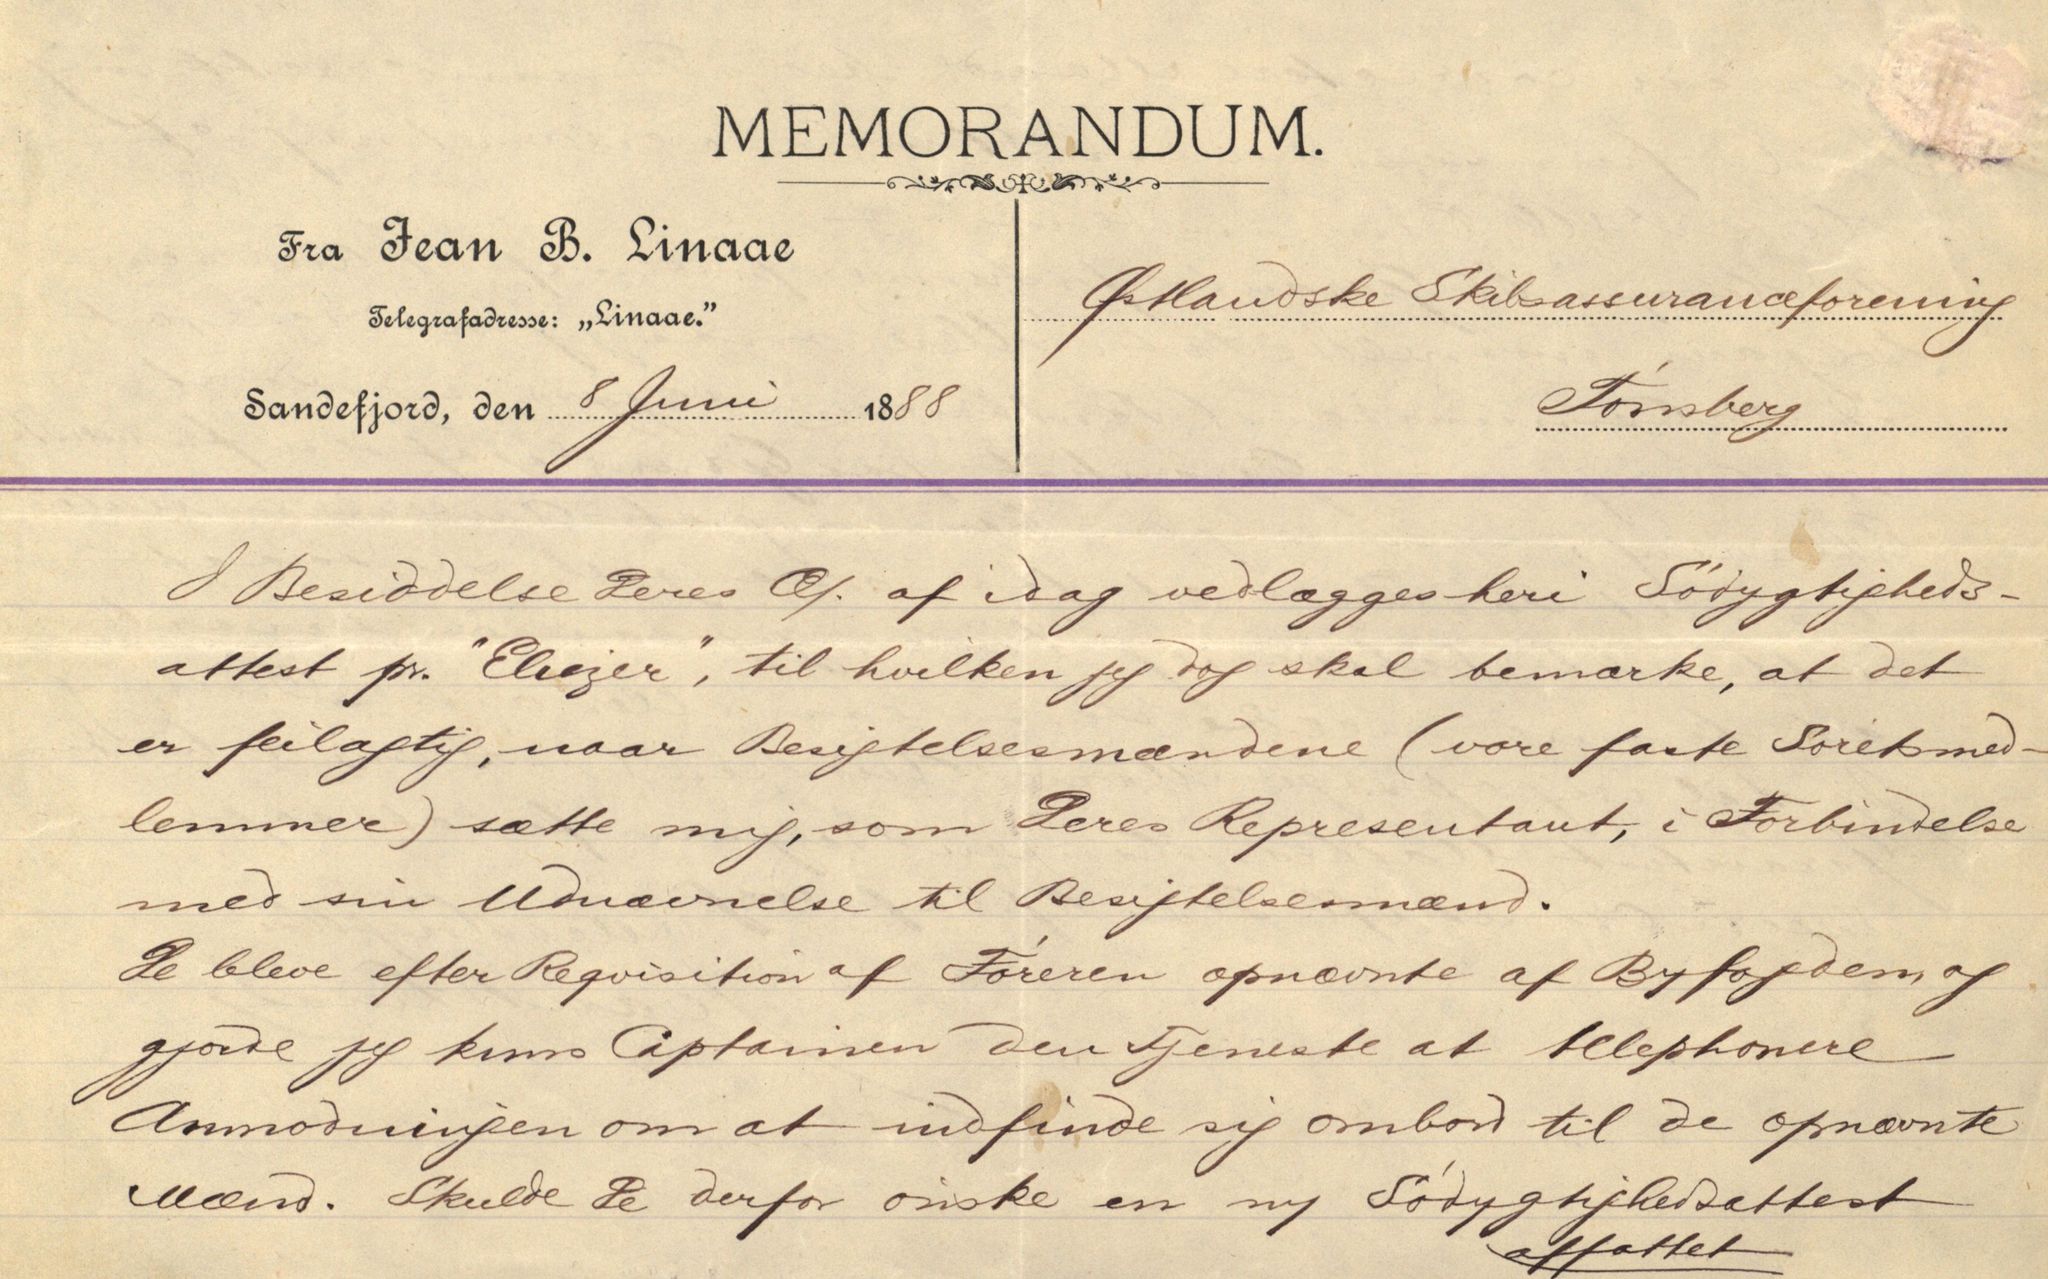 MEMORANDUM.
Fra Jean B. Linaae
Telegrafadresse: „Linaae."
Sandefjord, den 8 Juni 1888
Østlandske Skibsassuranceforening
Tönsberg
I Besiddelse Deres Æ/. af idag vedlægges heri Södygtigheds-
attest pr. "Eliezer", til hvilken jeg dog skal bemærke, at det
er feilagtig, naar Besigtelsesmændene (vore faste Söretsmed-
lemmer) sætte mig, som Deres Representant, i Forbindelse
med sin Udnævnelse til Besigtelsesmænd.
De bleve efter Requisition af Föreren opnævnte af Byfogden, og
gjorde jeg kuns Captainen den Tjeneste at telephonere
Anmodningen om at indfinde sig ombord til de opnævnte
Mænd. Skulde De derfor önske en ny Södygtighedsattest
affattet